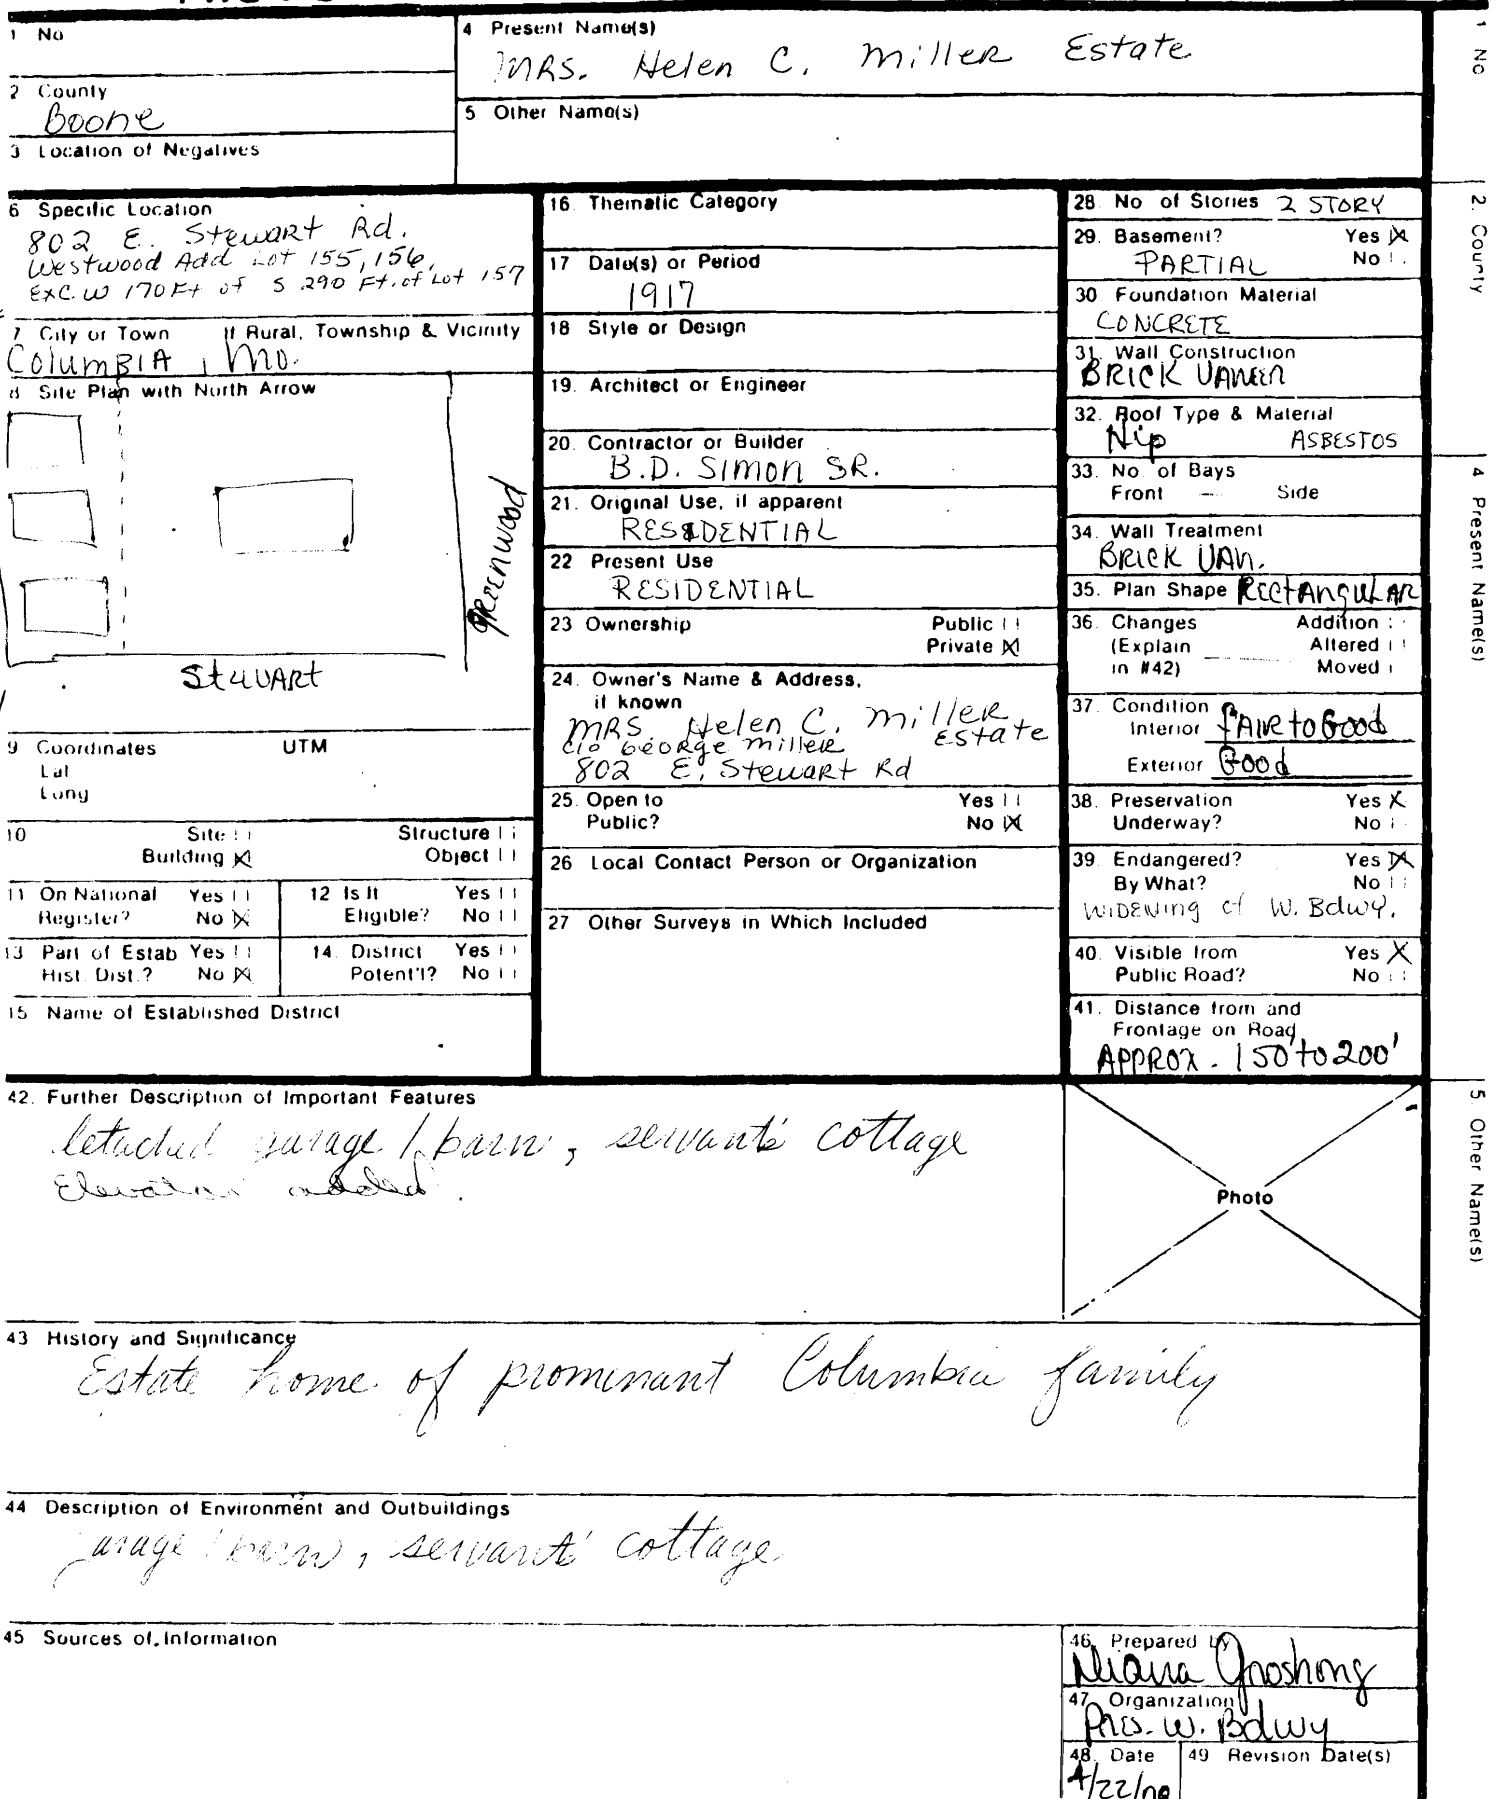 1 No
4 Present Name(s)
MRS. Helen C. Miller Estate
2 County
Boone
5 Other Name(s)
3 Location of Negatives
6 Specific Location
802 E. Stewart Rd.
Westwood Add Lot 155, 156,
Exc. W 170 Ft of S 290 Ft. of Lot 157
7 City or Town If Rural, Township & Vicinity
Columbia, Mo.
8 Site Plan with North Arrow
Greenwood
Stewart
9 Coordinates UTM
Lat
Long
10 Site
Structure
Building X
Object
11 On National Register? Yes No X
12 Is It Eligible? Yes No
13 Part of Estab Hist. Dist.? Yes No X
14. District Potent'l? Yes No
15 Name of Established District
16. Thematic Category
17 Date(s) or Period
1917
18 Style or Design
19. Architect or Engineer
20. Contractor or Builder
B.D. Simon SR.
21. Original Use, if apparent
RESIDENTIAL
22 Present Use
RESIDENTIAL
23 Ownership Public
Private X
24. Owner's Name & Address,
if known
MRS. Helen C. Miller
Estate
c/o George Miller
802 E. Stewart Rd
25. Open to Yes
Public? No X
26 Local Contact Person or Organization
27 Other Surveys in Which Included
28. No of Stories 2 STORY
29. Basement? Yes X
PARTIAL No
30 Foundation Material
CONCRETE
31. Wall Construction
BRICK VANEER
32. Roof Type & Material
Hip ASBESTOS
33. No. of Bays
Front — Side
34. Wall Treatment
BRICK VAN.
35. Plan Shape RECTANGULAR
36. Changes Addition
(Explain Altered
in #42) Moved
37. Condition
Interior FAIR to Good
Exterior Good
38. Preservation Yes X
Underway? No
39. Endangered? Yes X
By What? No
WIDENING of W. Bdwy.
40. Visible from Yes X
Public Road? No
41. Distance from and
Frontage on Road
APPROX. 150' to 200'
42. Further Description of Important Features
detached garage / barn, servants' cottage
Elevator added.
Photo
43 History and Significance
Estate home of prominant Columbia family
44 Description of Environment and Outbuildings
garage / barn, servants' cottage
45 Sources of Information
46. Prepared by
Diana Groshong
47. Organization
Pres. W. Bdwy
48. Date
4/22/
49 Revision Date(s)
1 No
2. County
4 Present Name(s)
5 Other Name(s)